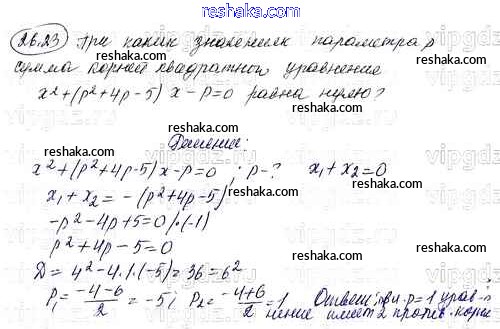 reshaka.ru
26.23 При каких значениях параметра p
сумма корней квадратного уравнение
x²+(p²+4p-5)x-p=0 равна нулю?
Решение:
x²+(p²+4p-5)x-p=0 ; p-? x₁+x₂=0
x₁+x₂=-(p²+4p-5)
-p²-4p+5=0 |·(-1)
p²+4p-5=0
D=4²-4·1·(-5)=36=6²
p₁=(-4-6)/2=-5; p₂=(-4+6)/2=1 Ответ: при p=1 урав-
нение имеет 2 против. корня